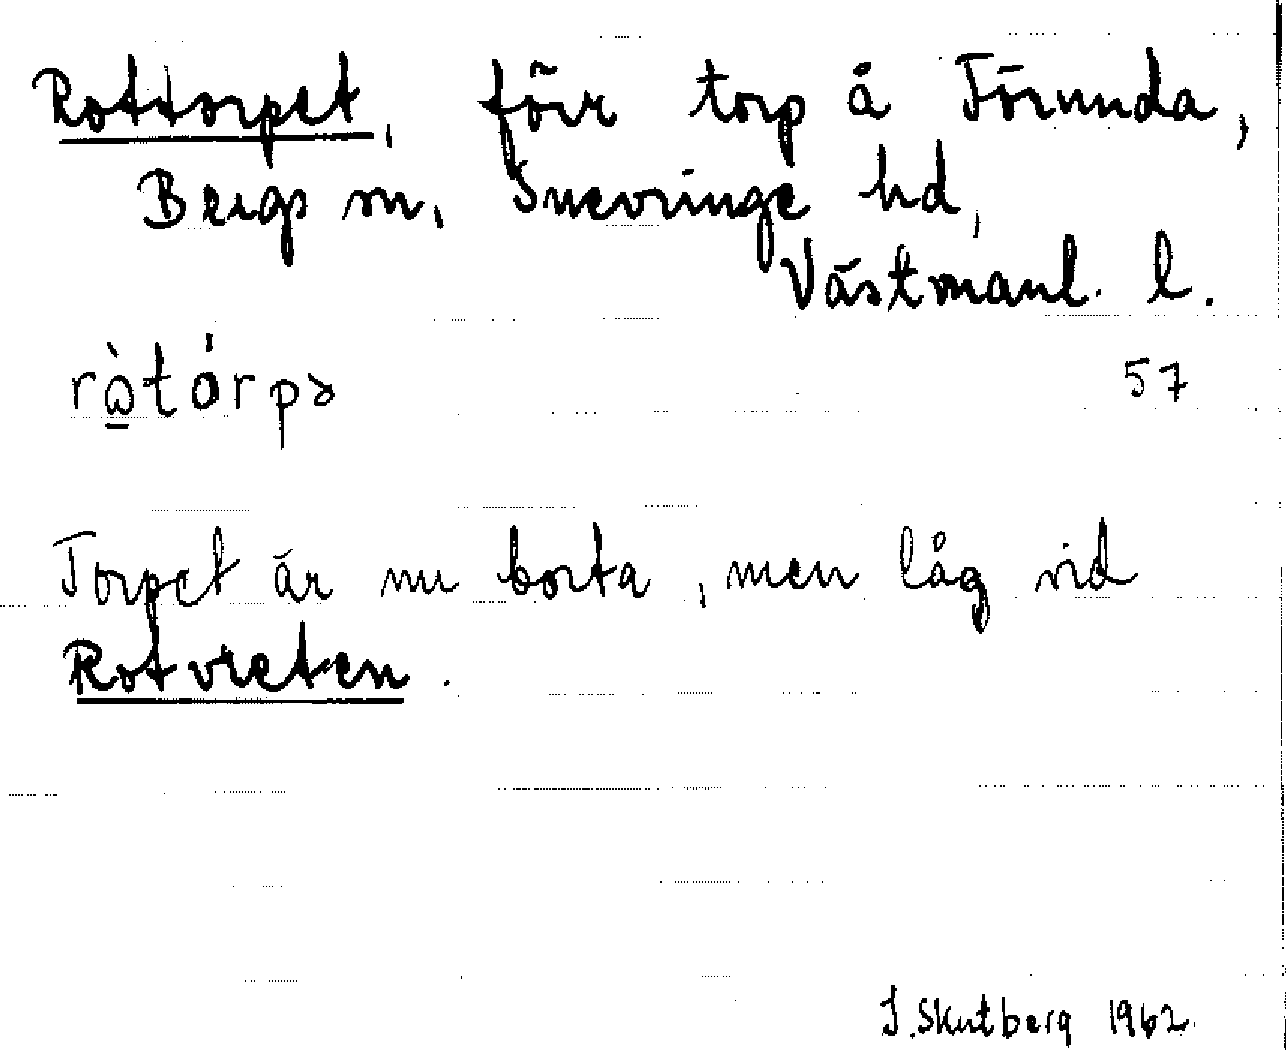 Rottorpet, förr torp å Förunda,
Bergs sn, Snevringe hd,
Västmanl. l.
rὼ̠tårpə 57
Torpet är nu borta, men låg vid
Rotvreten.
I. Skutberg 1962